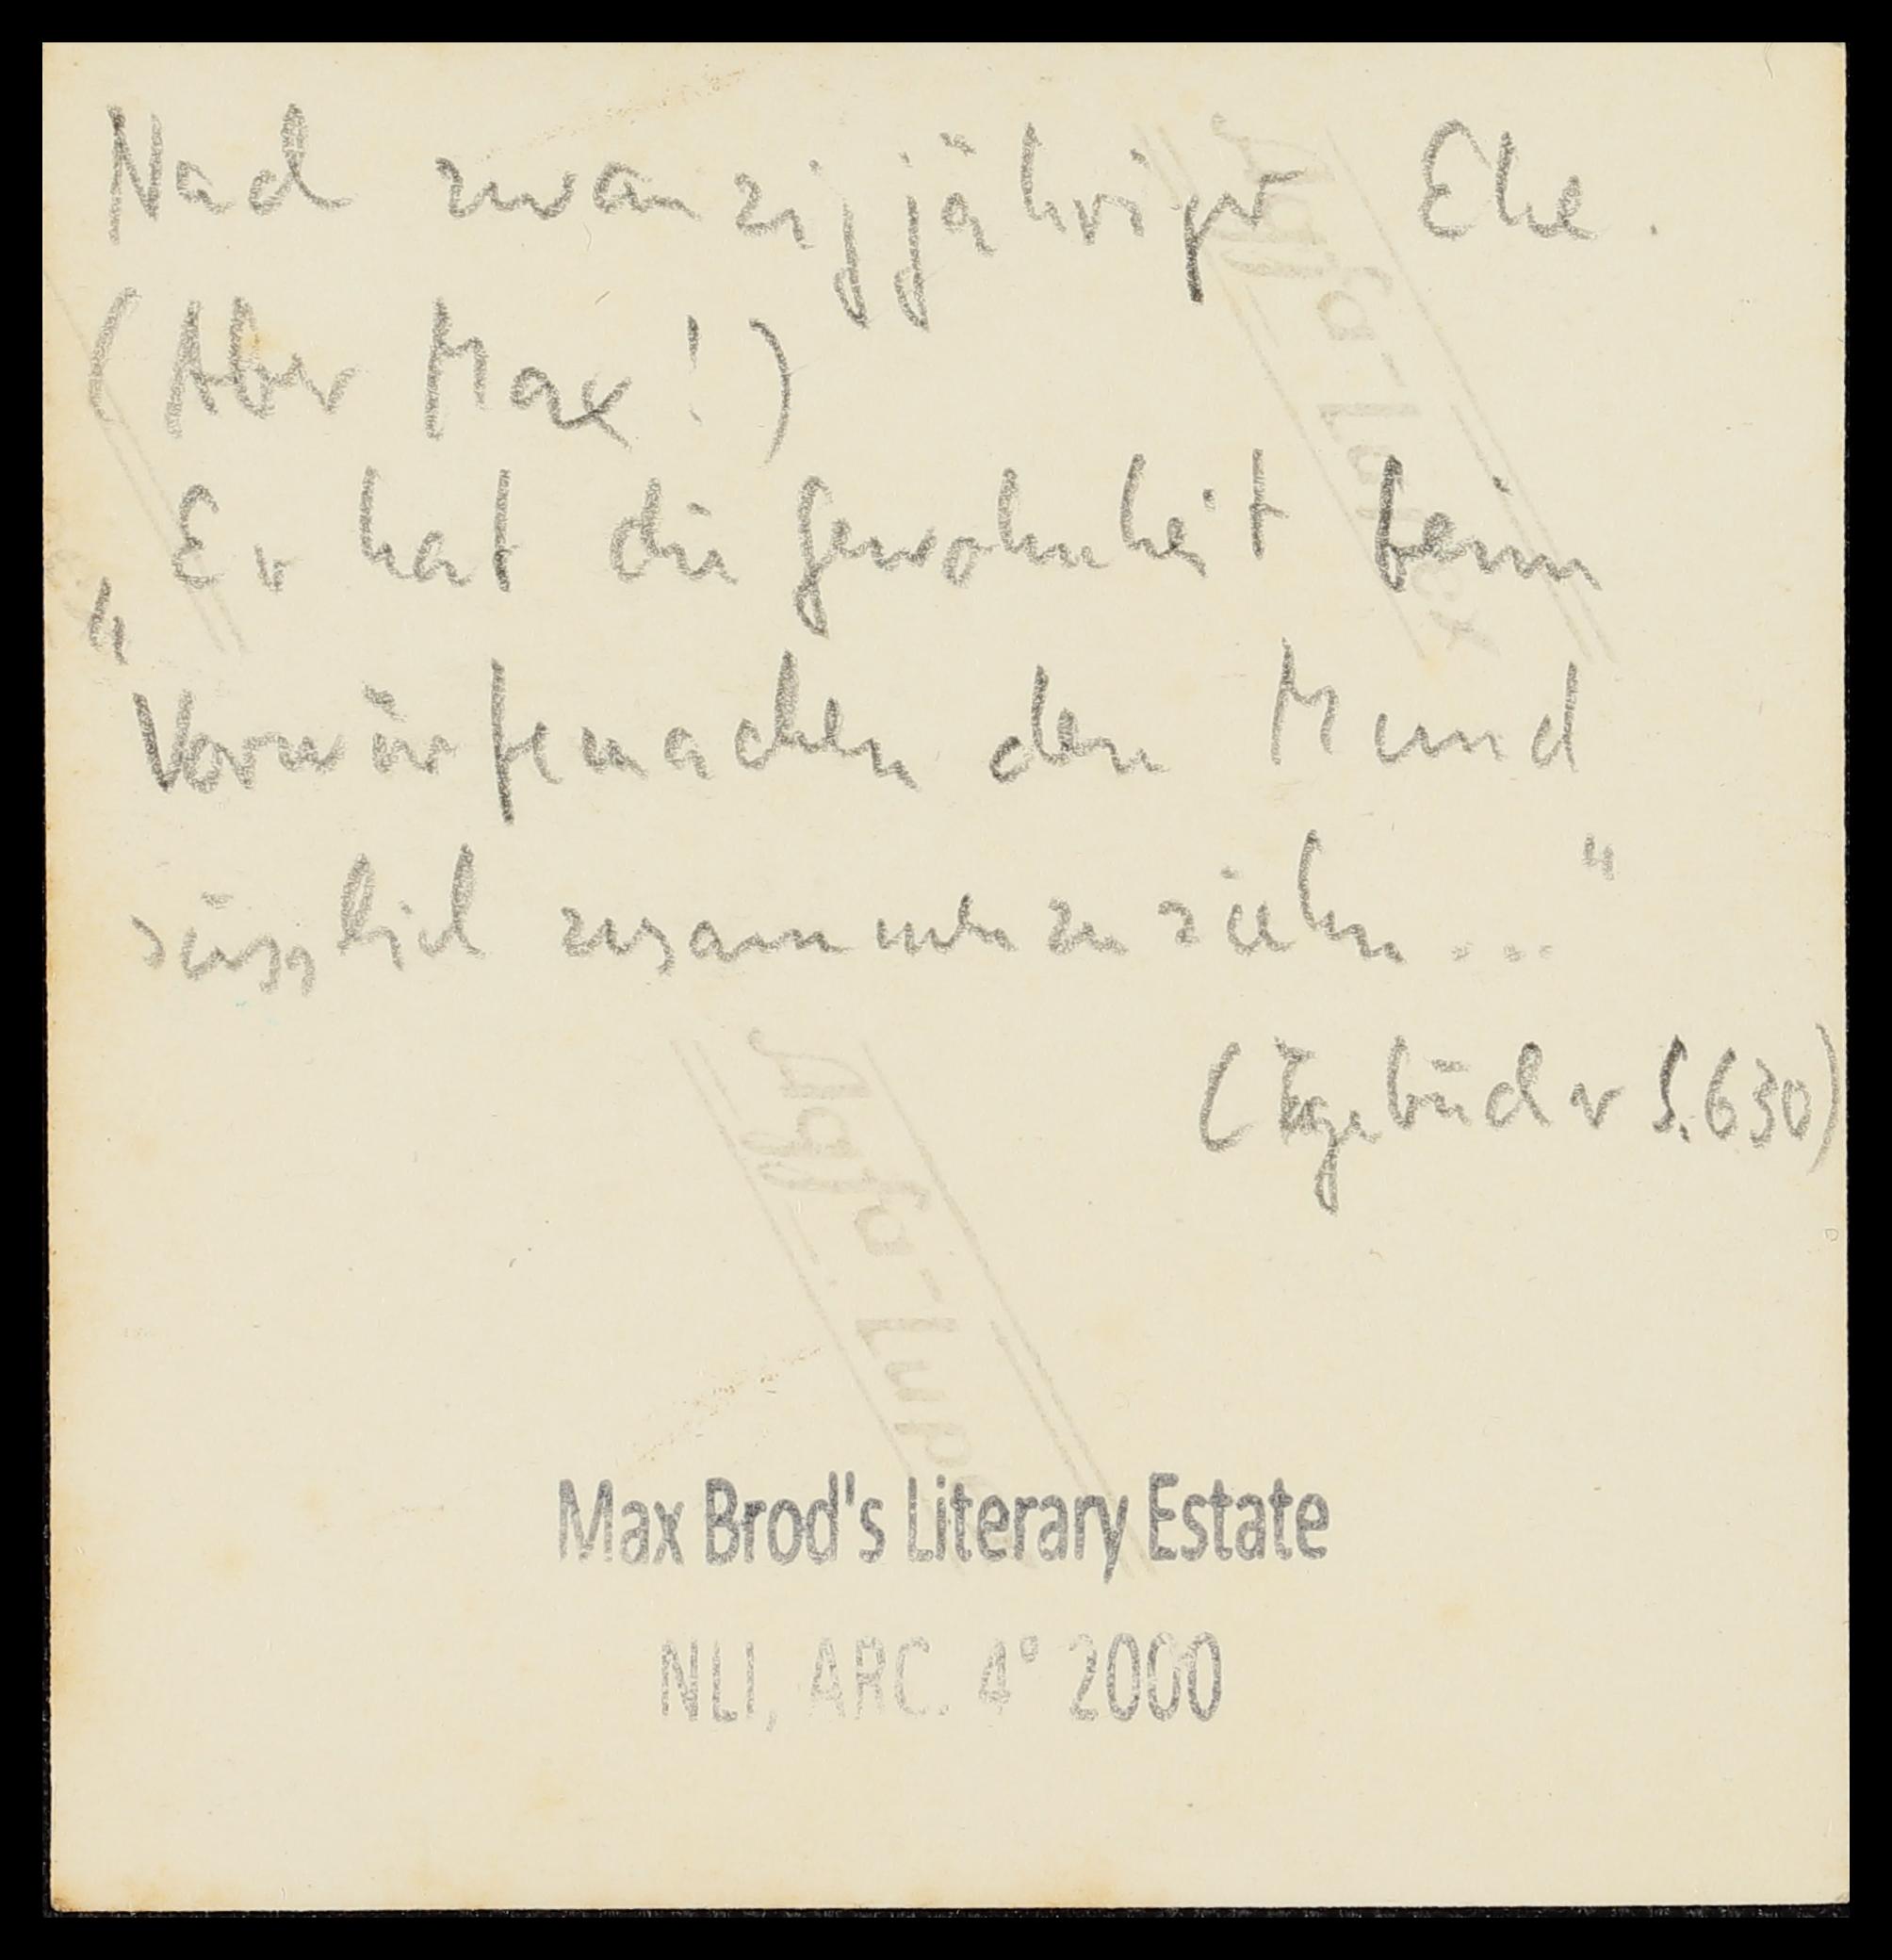 Nach zwanzigjähriger Ehe.
(Aber Max!)
„Er hat die Gewohnheit beim
Vorwürfemachen den Mund
süsslich zusammenzuziehn..."
(Tagebücher S. 630)
Agfa-Lupex
Agfa-Lup
Max Brod's Literary Estate
NLI, ARC. 4° 2000